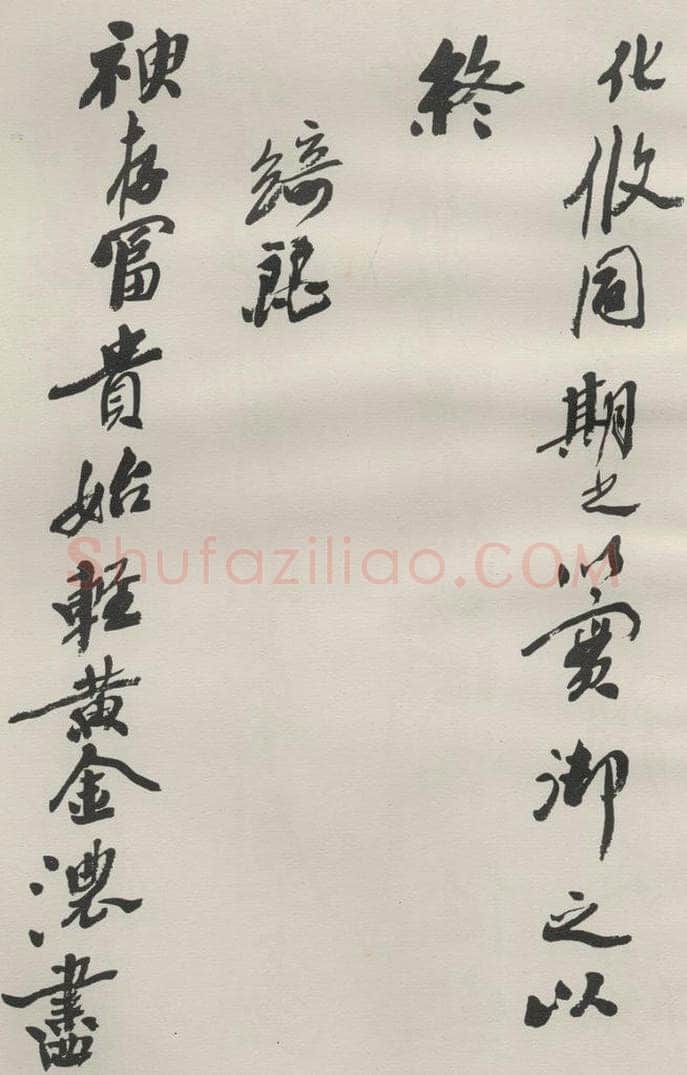 化攸同期之以實御之以
終
綺麗
神存富貴始輕黄金濃盡
Shufaziliao.COM